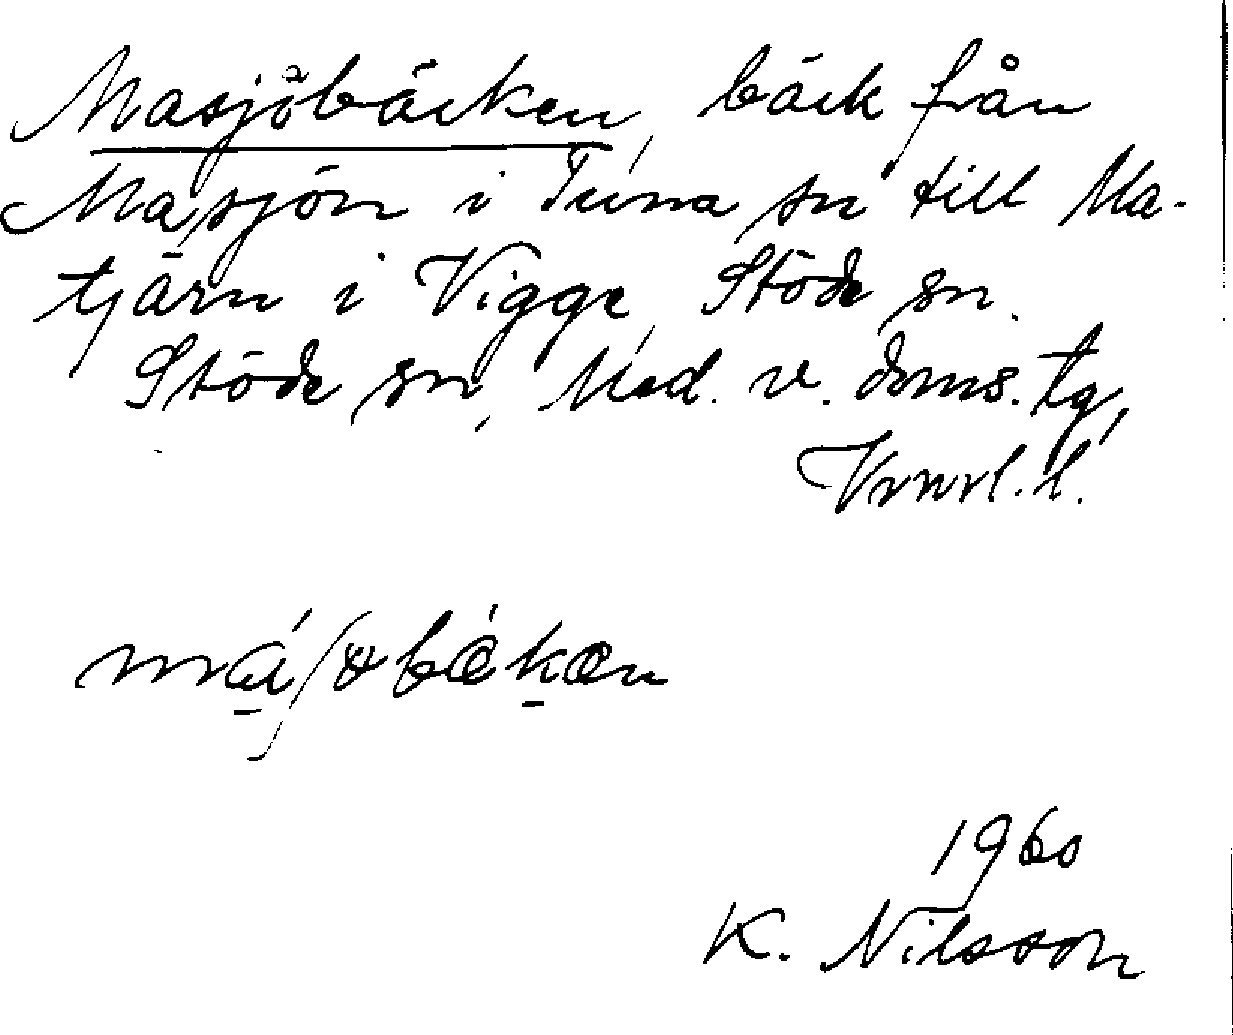 Masjöbäcken, bäck från
Masjön i Tuna sn till Ma-
tjärn i Vigge, Stöde sn.
Stöde sn, Med. v. doms. tg,
Vrnrl. l.
K. Nilsson
1960